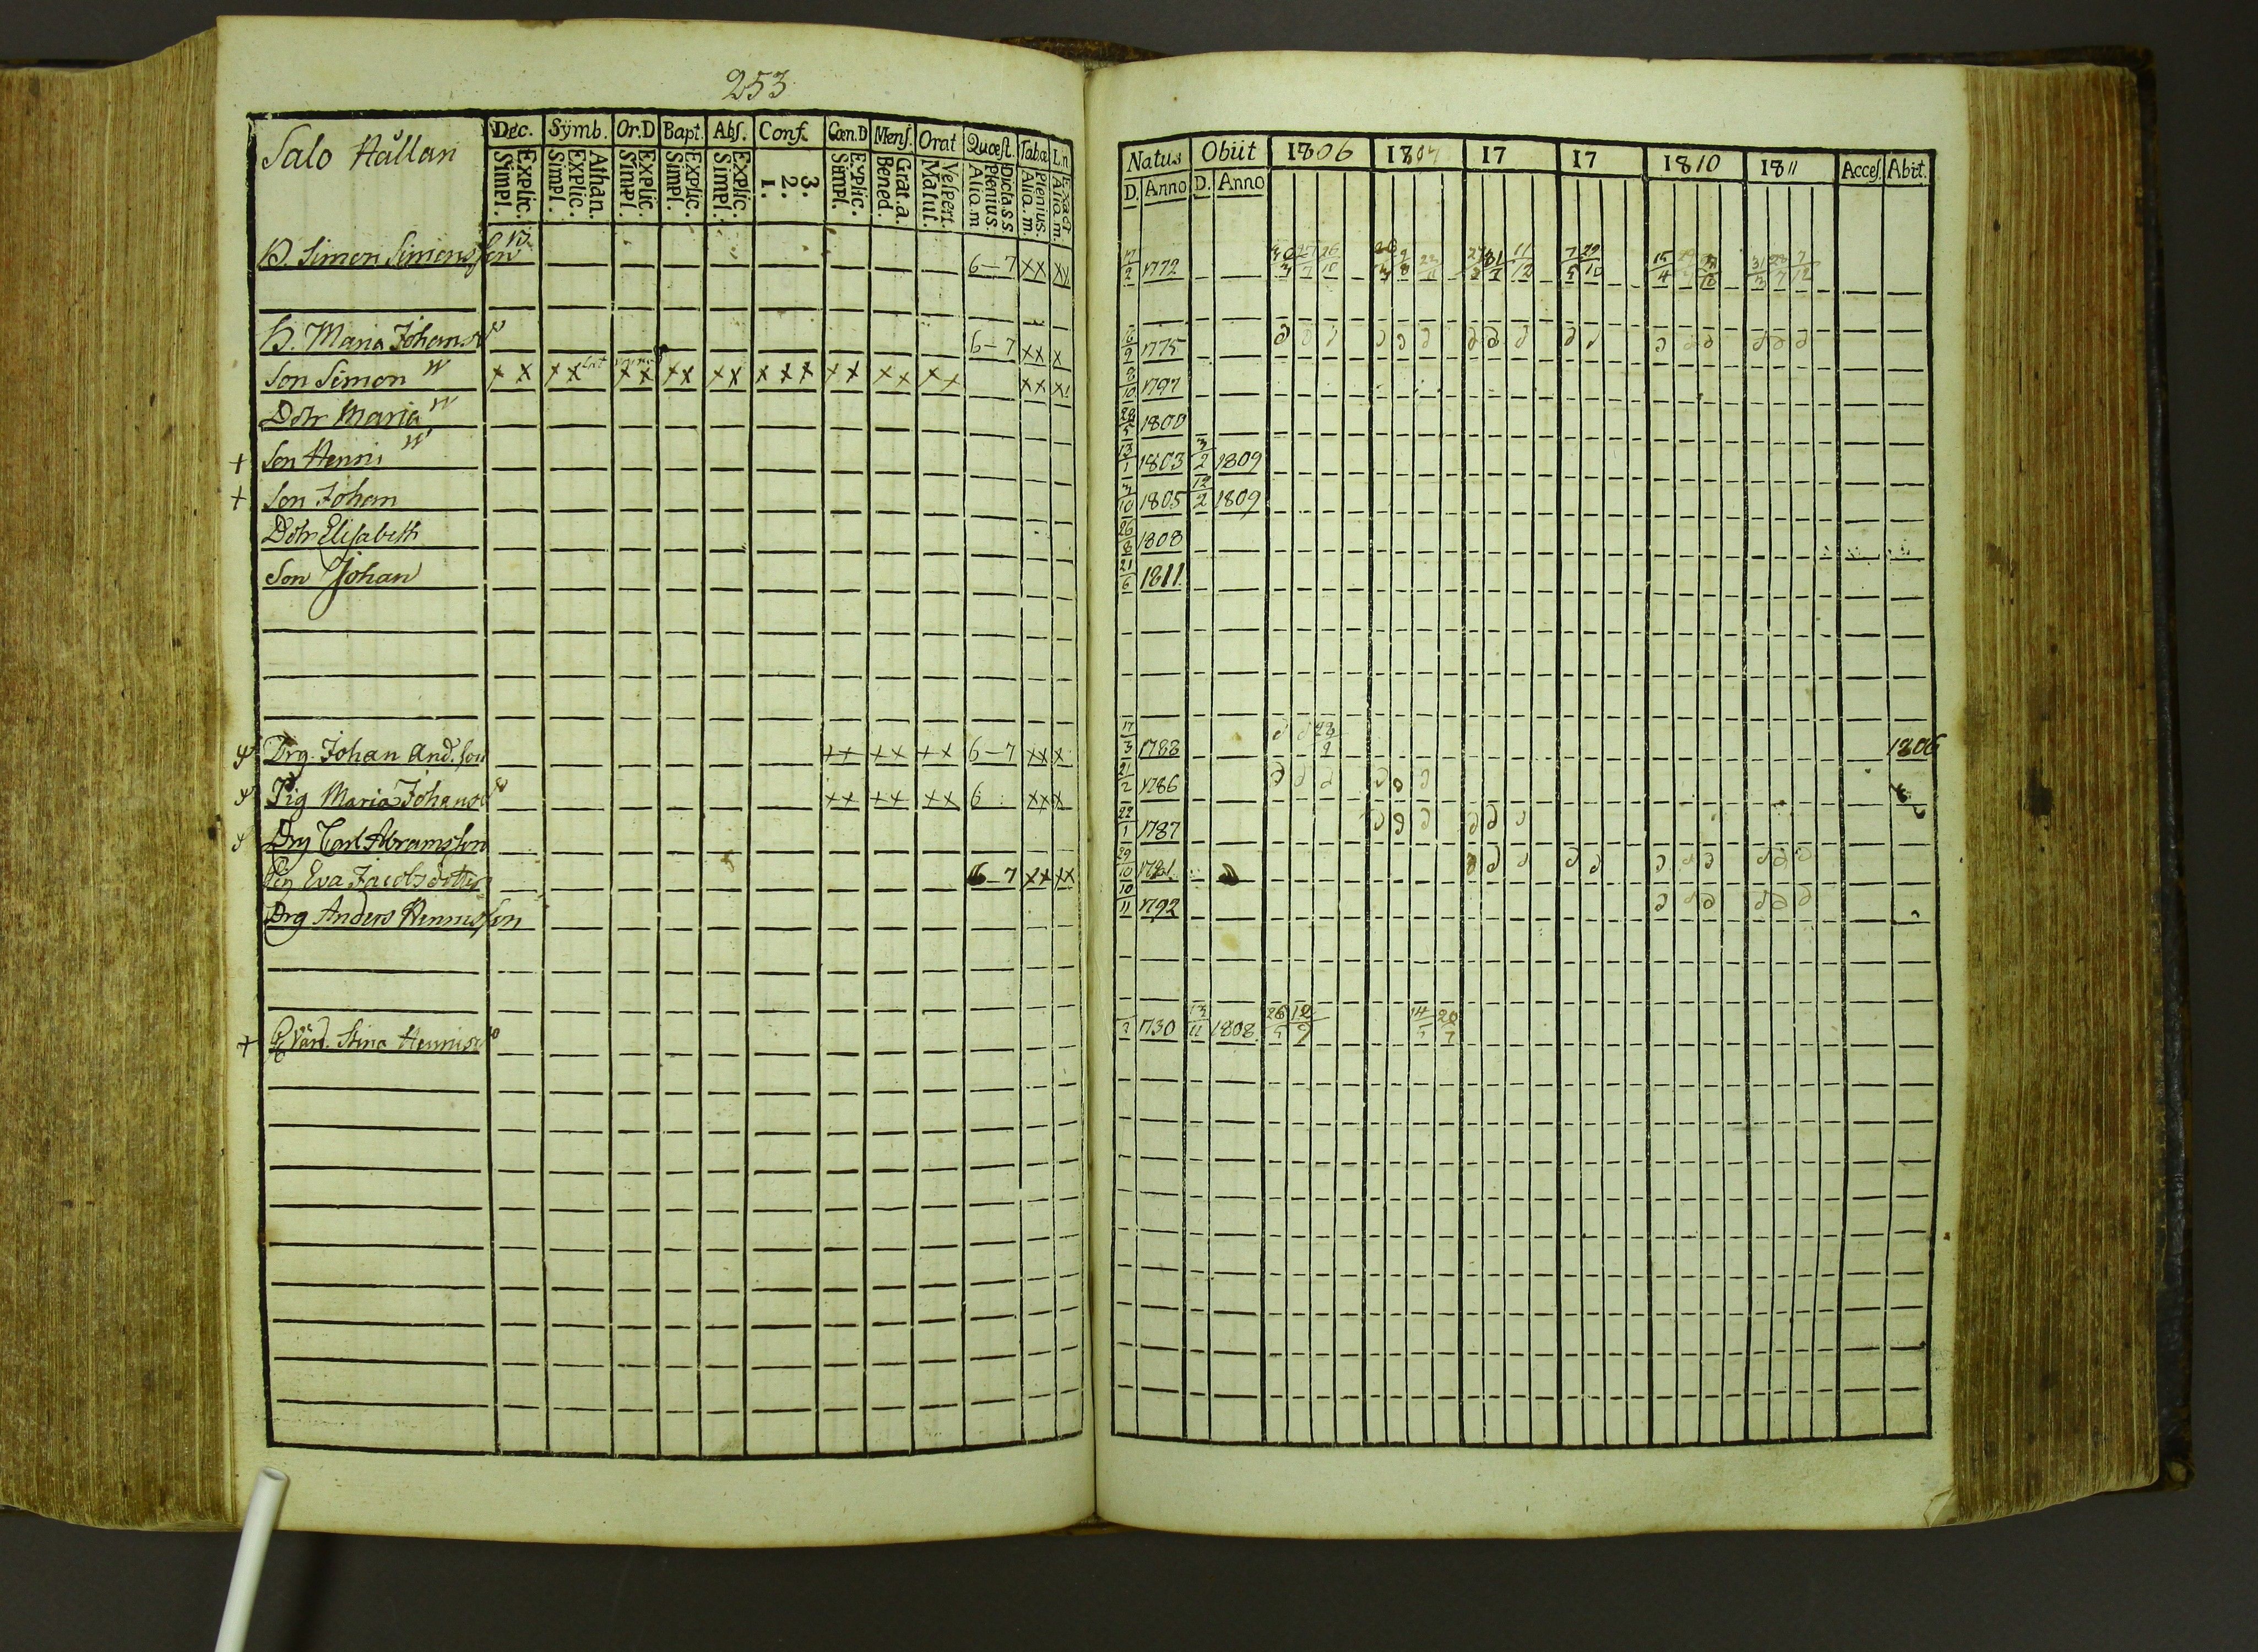 253
Salo Hållari
Dec. Symb. Or.D Bapt. Abs. Conf. Cœn.D Mens. Orat Quæst. Tabœ L.n
Explic. Simpl. Athan. Explic. Simpl. Explic. Simpl. Explic. Simpl. Explic. Simpl. 3. 2. 1. Explic. Simpl. Grat.a. Bened. Vespert. Matut. Dicta s s Plenius. Alia.m Plenius. Alia.m. Exact Alia.m.
Natus Obiit 1806 1807 17 17 1810 1811 Acces. Abit.
D. Anno D. Anno
B. Simon Simonsson 6-7 xx xx 17/2 1772
H. Maria Johansd 6-7 xx x 16/9 1775
Son Simon x x x x x x x x x x x x x x x x x x x xx 8/10 1797
Dotr Maria 1800
+ Son Henric 13/1 1803 3/2 1809
+ Son Johan 3/10 1805 12/2 1809
Dotr Elisabeth 26/8 1808
Son Johan 21/6 1811
Drg. Johan And.son ++ ++ ++ 6-7 xx x 17/3 1788 1806
Pig Maria Johansd ++ ++ xx 6 xx x 21/2 1786
Drg Carl Abramsson 22/1 1787
Pig Eva Jacobsdotter 6-7 xx xx 29/10 1781
Drg Anders Henricsson 10/11 1792
+ Stina Henricsd 1730 13/11 1808